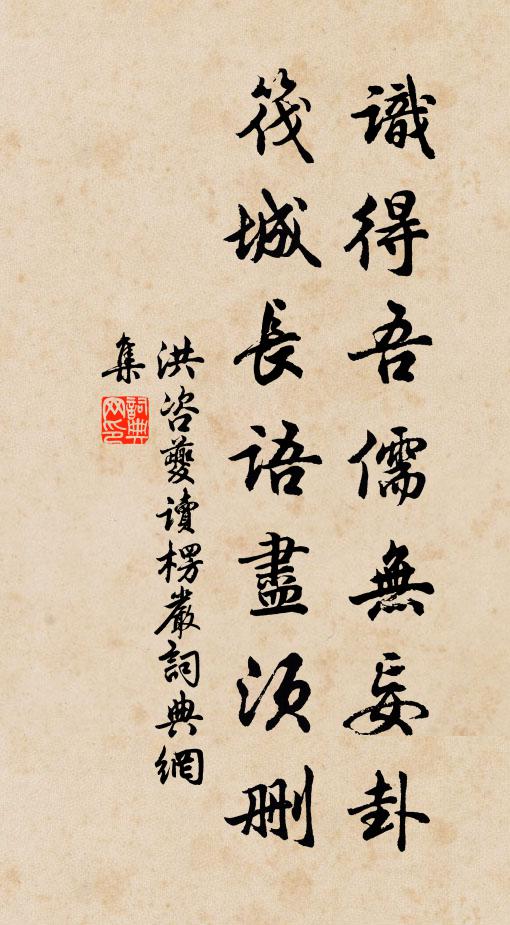 識得吾儒無妄卦
筏城長語盡須刪
洪咨夔讀楞嚴詞典網
集
詞典網印